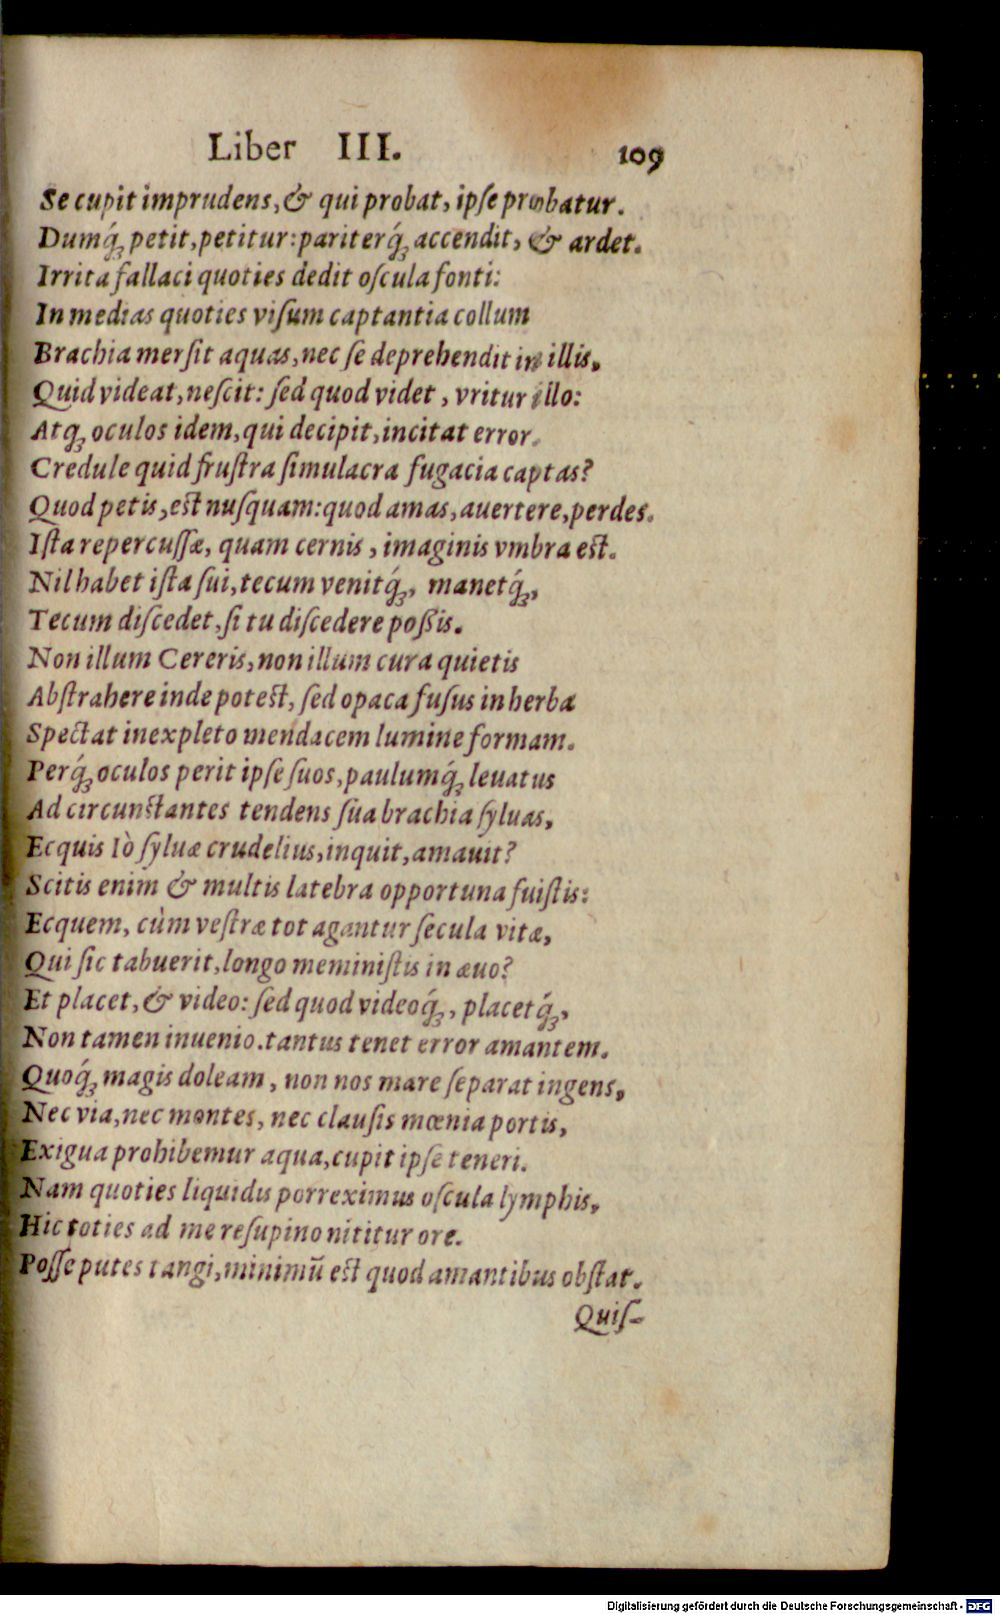 Liber III. 109
Se cupit imprudens, & qui probat, ipſe probatur.
Dumq́; petit, petitur: pariterq́; accendit, & ardet.
Irrita fallaci quoties dedit oſcula fonti:
In medias quoties viſum captantia collum
Brachia merſit aquas, nec ſe deprehendit in illis,
Quid videat, neſcit: ſed quod videt, vritur illo:
Atq; oculos idem, qui decipit, incitat error.
Credule quid fruſtra ſimulacra fugacia captas?
Quod petis, est nuſquam: quod amas, auertere, perdes.
Iſta repercuſſæ, quam cernis, imaginis vmbra est.
Nil habet iſta ſui, tecum venitq́;, manetq́;,
Tecum diſcedet, ſi tu diſcedere poßis.
Non illum Cereris, non illum cura quietis
Abſtrahere inde potest, ſed opaca fuſus in herba
Spectat inexpleto mendacem lumine formam.
Perq́; oculos perit ipſe ſuos, paulumq́; leuatus
Ad circunstantes tendens ſua brachia ſyluas,
Ecquis Iò ſyluæ crudelius, inquit, amauit?
Scitis enim & multis latebra opportuna fuiſtis:
Ecquem, cùm veſtræ tot agantur ſecula vitæ,
Qui ſic tabuerit, longo meminiſtis in æuo?
Et placet, & video: ſed quod videoq́;, placetq́;,
Non tamen inuenio. tantus tenet error amantem.
Quoq́; magis doleam, non nos mare ſeparat ingens,
Nec via, nec montes, nec clauſis mœnia portis,
Exigua prohibemur aqua, cupit ipſe teneri.
Nam quoties liquidis porreximus oſcula lymphis,
Hic toties ad me reſupino nititur ore.
Poſſe putes tangi, minimū est quod amantibus obſtat.
Quiſ-
Digitalisierung gefördert durch die Deutsche Forschungsgemeinschaft - DFG